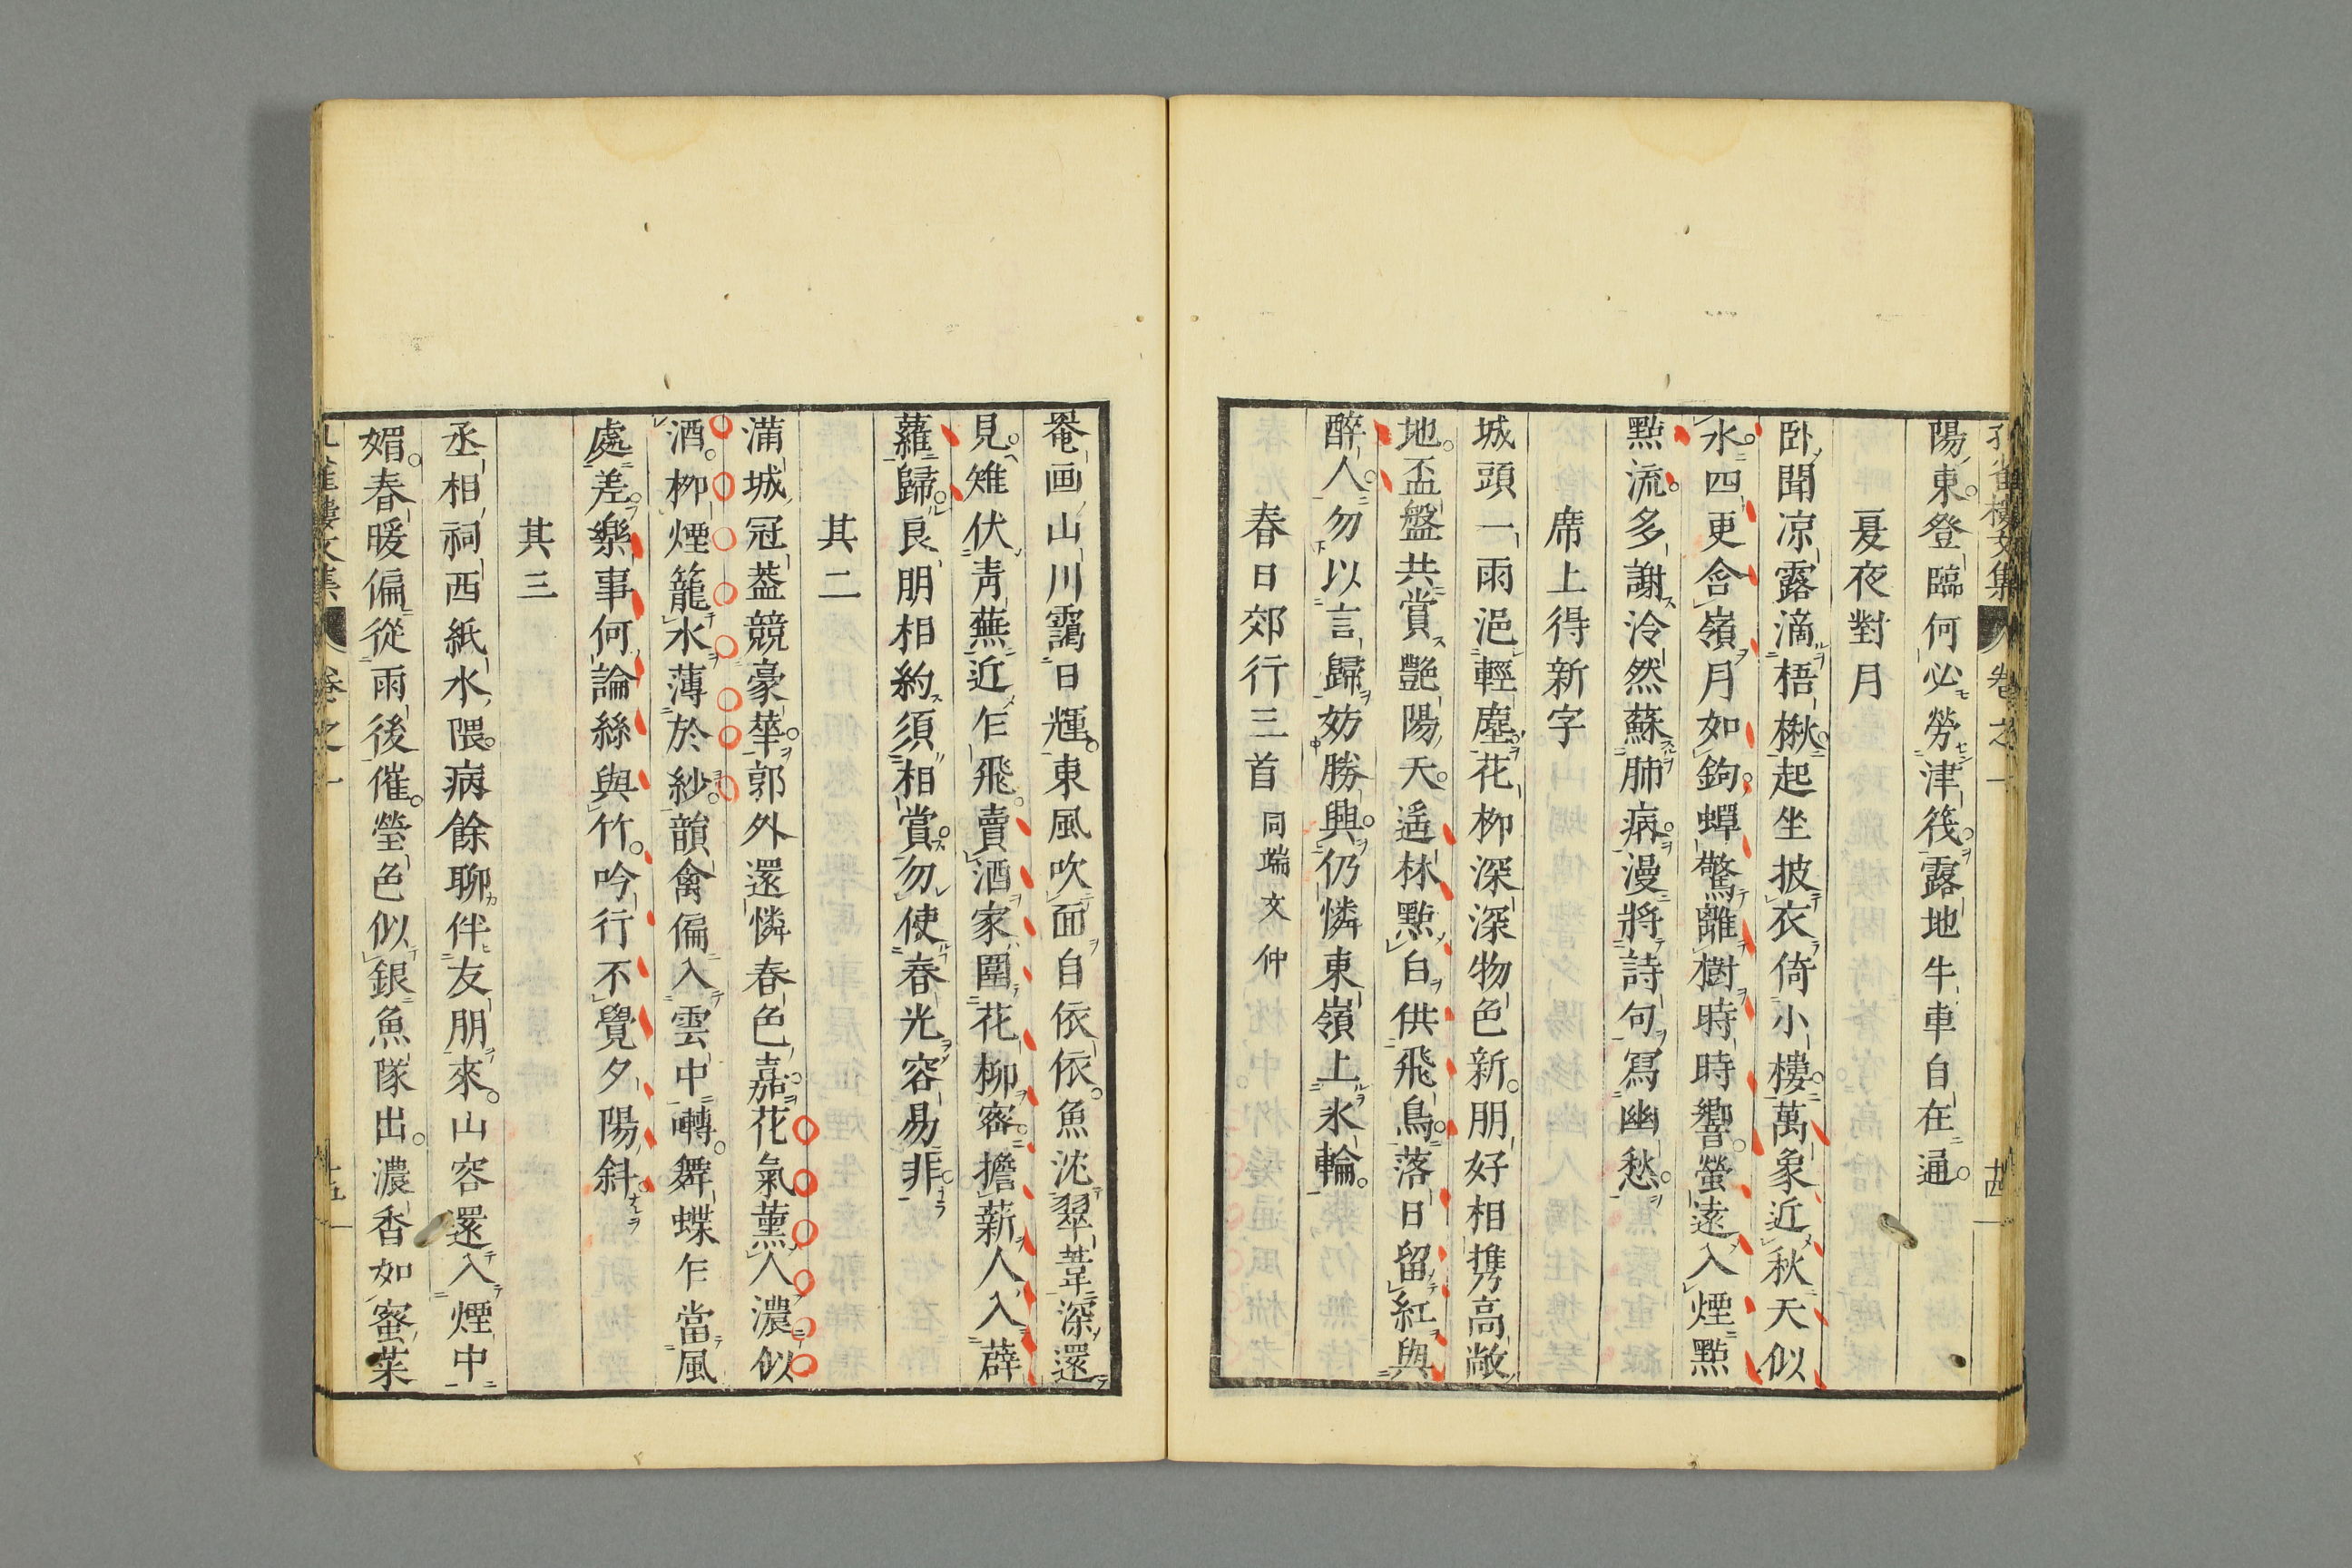 孔雀樓文集 卷之一 十四
陽東登臨何必勞津筏露地牛車自在通
夏夜對月
臥聞凉露滴梧楸起坐披衣倚小樓萬象近秋天似
水四更含嶺月如鉤蟬驚離樹時時響螢遠入煙點
點流多謝泠然蘇肺病漫將詩句寫幽愁
席上得新字
城頭一雨浥輕塵花柳深深物色新朋好相携高敞
地盃盤共賞艷陽天遥林點白供飛鳥落日留紅與
醉人勿以言歸妨勝興仍憐東嶺上氷輪
春日郊行三首同端文仲
罨画山川靄日輝東風吹面自依依魚沈翠葦深還
見雉伏靑蕪近乍飛賣酒家圍花柳密擔薪人入薜
蘿歸良朋相約須相賞勿使春光容易非
其二
滿城冠葢競豪華郭外還憐春色嘉花氣薰人濃似
酒柳煙籠水薄於紗韻禽偏入雲中囀舞蝶乍當風
處差樂事何論絲與竹吟行不覺夕陽斜
其三
丞相祠西紙水隈病餘聊伴友朋來山容還入煙中
媚春暖偏從雨後催瑩色似銀魚隊出濃香如蜜茱
孔雀樓文集 卷之一 十五